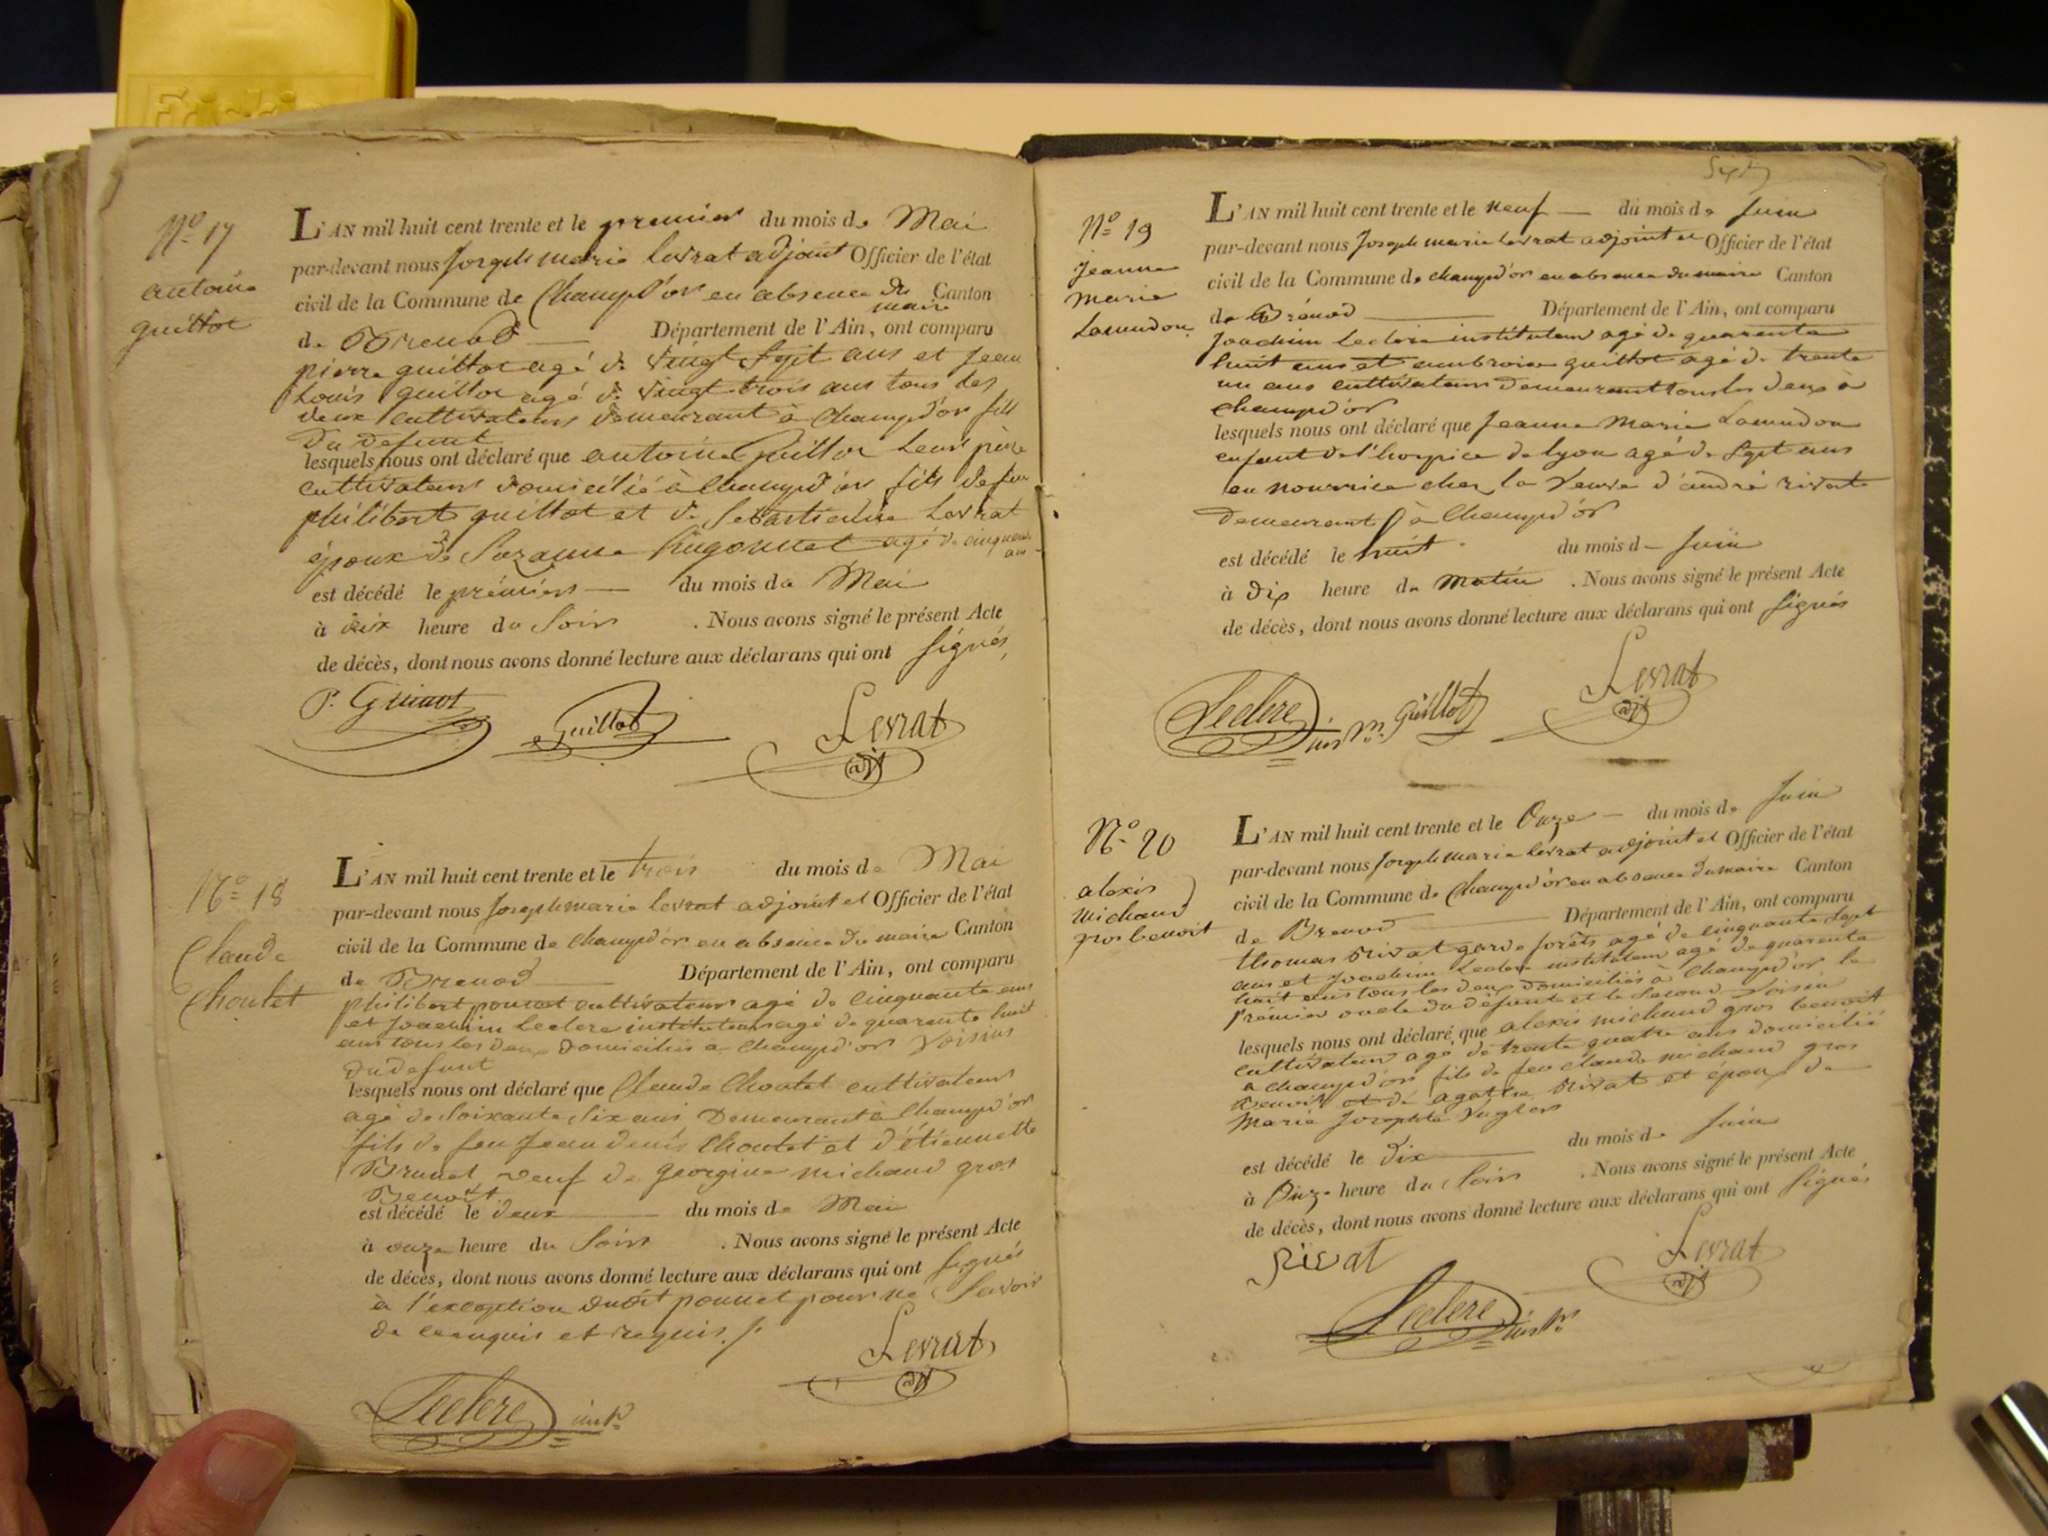 Friskies
N° 17
antoine
guillot
L'AN mil huit cent trente et le premier du mois de Mai
par-devant nous Joseph marie levrat adjoint Officier de l'état
civil de la Commune de Champd'or en absence du maire Canton
de Brenod Département de l'Ain, ont comparu
pierre guillot agé de vingt Sept ans et jean
Louis guillot agé de vingt trois ans tous les
deux cultivateurs demeurant à Champd'or fils
du defunt
lesquels nous ont déclaré que antoine Guillot Leur père
cultivateur domicilié à Champd'or fils de feu
philibert guillot et de Sebastienne Levrat
époux de Suzanne hugonnet agé de cinquante ans
est décédé le prémier du mois de Mai
à dix heure du Soir . Nous avons signé le présent Acte
de décès, dont nous avons donné lecture aux déclarans qui ont Signés
P. Guillot Guillot Levrat
adj
N° 18
Claude
Choulet
L'AN mil huit cent trente et le trois du mois de Mai
par-devant nous Joseph marie levrat adjoint et Officier de l'état
civil de la Commune de Champd'or en absence du maire Canton
de Brenod Département de l'Ain, ont comparu
philibert ponnet cultivateur agé de cinquante ans
et Joachim Leclere instituteur agé de quarente huit
ans tous les deux domiciliés à Champd'or Voisins
du defunt
lesquels nous ont déclaré que Claude Choulet cultivateur
agé de Soixante Six ans Demeurant à Champd'or
fils de feu Jean denis Choulet et d'étiennette
Brunet veuf de georgine michaud gros
Benoit
est décédé le deux du mois de Mai
à onze heure du Soir . Nous avons signé le présent Acte
de décès, dont nous avons donné lecture aux déclarans qui ont Signés
à l'exception dudit ponnet pour ne Savoir
de ce enquis et requis ./.
Levrat
adj
Leclere instr
Sept
N° 19
Jeanne
Marie
Lamudon
L'AN mil huit cent trente et le neuf du mois de Juin
par-devant nous Joseph marie levrat adjoint et Officier de l'état
civil de la Commune de champd'or en absence du maire Canton
de Brénod Département de l'Ain, ont comparu
Joachim Leclere instituteur agé de quarente
huit ans et ambroise guillot agé de trente
un ans cultivateur demeurant tous les deux à
champd'or
lesquels nous ont déclaré que Jeanne Marie Lamudon
enfant de l'hospice de lyon agé de Sept ans
en nourrice chez la Veuve d'andré rivat
demeurant à Champd'or
est décédé le huit du mois d Juin
à dix heure du matin . Nous avons signé le présent Acte
de décès, dont nous avons donné lecture aux déclarans qui ont Signés
Leclere instr. Guillot Levrat
adj
N° 20
alexis
michaud
gros benoit
L'AN mil huit cent trente et le Onze du mois de Juin
par-devant nous Joseph marie levrat adjoint et Officier de l'état
civil de la Commune de Champd'or en absence du maire Canton
de Brenod Département de l'Ain, ont comparu
thomas rivat garde forêts agé de cinquante Sept
ans et Joachim Leclere instituteur agé de quarente
huit ans tous les deux domiciliés à Champd'or le
prémier oncle du défunt et le Second Voisin
lesquels nous ont déclaré que alexis michaud gros benoit
cultivateur agé de trente quatre ans domicilié
à champd'or fils de feu claude michaud gros
Benoit et de agathe rivat et époux de
Marie Josephte
est décédé le dix du mois de Juin
à Onze heure du Soir . Nous avons signé le présent Acte
de décès, dont nous avons donné lecture aux déclarans qui ont Signés
Rivat Levrat
adj
Leclere instr